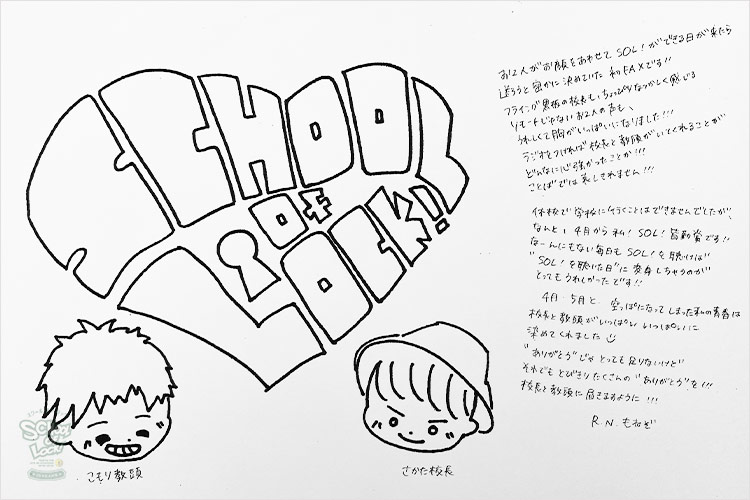 SCHOOL
OF
LOCK!!
お2人がお顔をあわせて SOL!ができる日が来たら
送ろうと密かに決めていた 初FAXです!!
フライング黒板の校長も、ちょっぴりなつかしく感じる
リモートじゃないお2人の声も、
うれしくて胸がいっぱいになりました!!!
ラジオをつければ 校長と教頭がいてくれることが
どんなに心強かったことか!!!
ことばでは表しきれません!!!
休校で学校に行くことはできませんでしたが、
なんと、4月から私!SOL!皆勤賞です!!
なーんにもない毎日も SOL!を聴けば
"SOL!を聴いた日"に変身しちゃうのが
とってもうれしかったです!!
4月・5月と、空っぽになってしまった私の青春は
校長と教頭がいっぱい いっぱいに
染めてくれました
"ありがとう"じゃ とっても足りないけど
それでも とびきりたくさんの"ありがとう"を!!!
校長と教頭に届きますように!!!
R.N. もねぎ
こもり教頭
さかた校長